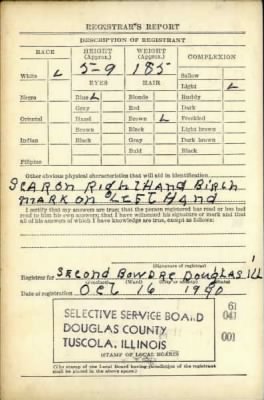 REGISTRAR'S REPORT
DESCRIPTION OF REGISTRANT
RACE HEIGHT (Approx.) WEIGHT (Approx.) COMPLEXION
White L 5-9 185 Sallow
EYES HAIR Light L
Negro Blue L Blonde Ruddy
Gray Red Dark
Oriental Hazel Brown L Freckled
Brown Black Light brown
Indian Black Gray Dark brown
Bald Black
Filipino
Other obvious physical characteristics that will aid in identification
SCAR ON Right HAND Birth
MARK ON LEFT HAND
I certify that my answers are true; that the person registered has read or has had
read to him his own answers; that I have witnessed his signature or mark and that
all of his answers of which I have knowledge are true, except as follows:
(Signature of registrar)
Registrar for Second Bowdre Douglas Ill
(Precinct) (Ward) (City or county) (State)
Date of registration Oct 16 1940
61
041
001
SELECTIVE SERVICE BOARD
DOUGLAS COUNTY
TUSCOLA, ILLINOIS
(STAMP OF LOCAL BOARD)
(The stamp of the Local Board having jurisdiction of the registrant
shall be placed in the above space.)